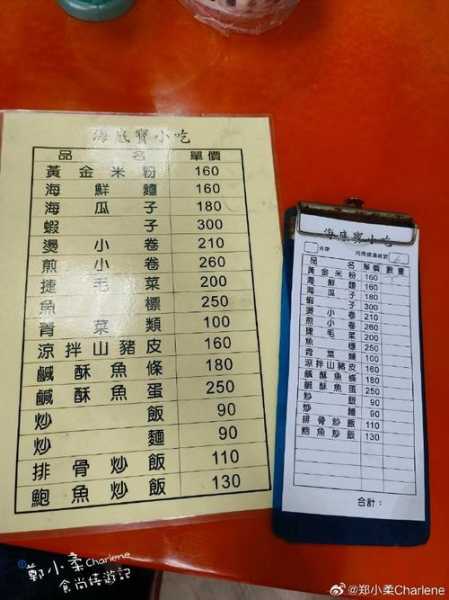 海底寶小吃
品名 單價
黃金米粉 160
海鮮麵 160
海瓜子 180
蝦子 300
燙小卷 210
煎小卷 260
捷毛菜 200
魚標 250
青菜類 100
涼拌山豬皮 160
鹹酥魚條 180
鹹酥魚蛋 250
炒飯 90
炒麵 90
排骨炒飯 110
鮑魚炒飯 130
海底寶小吃
品名 單價 數量
黃金米粉 160
海鮮麵 160
海瓜子 180
蝦子 300
燙小卷 210
煎小卷 260
捷毛菜 200
魚標 250
青菜類 100
涼拌山豬皮 160
鹹酥魚條 180
鹹酥魚蛋 250
炒飯 90
炒麵 90
排骨炒飯 110
鮑魚炒飯 130
合計：
鄭小柔Charlene
食尚旅遊記
@郑小柔Charlene